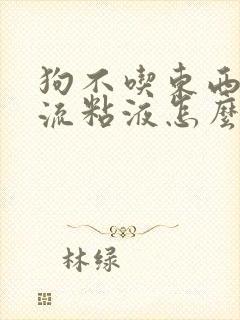 狗不喫東西
流粘液怎麼
林绿